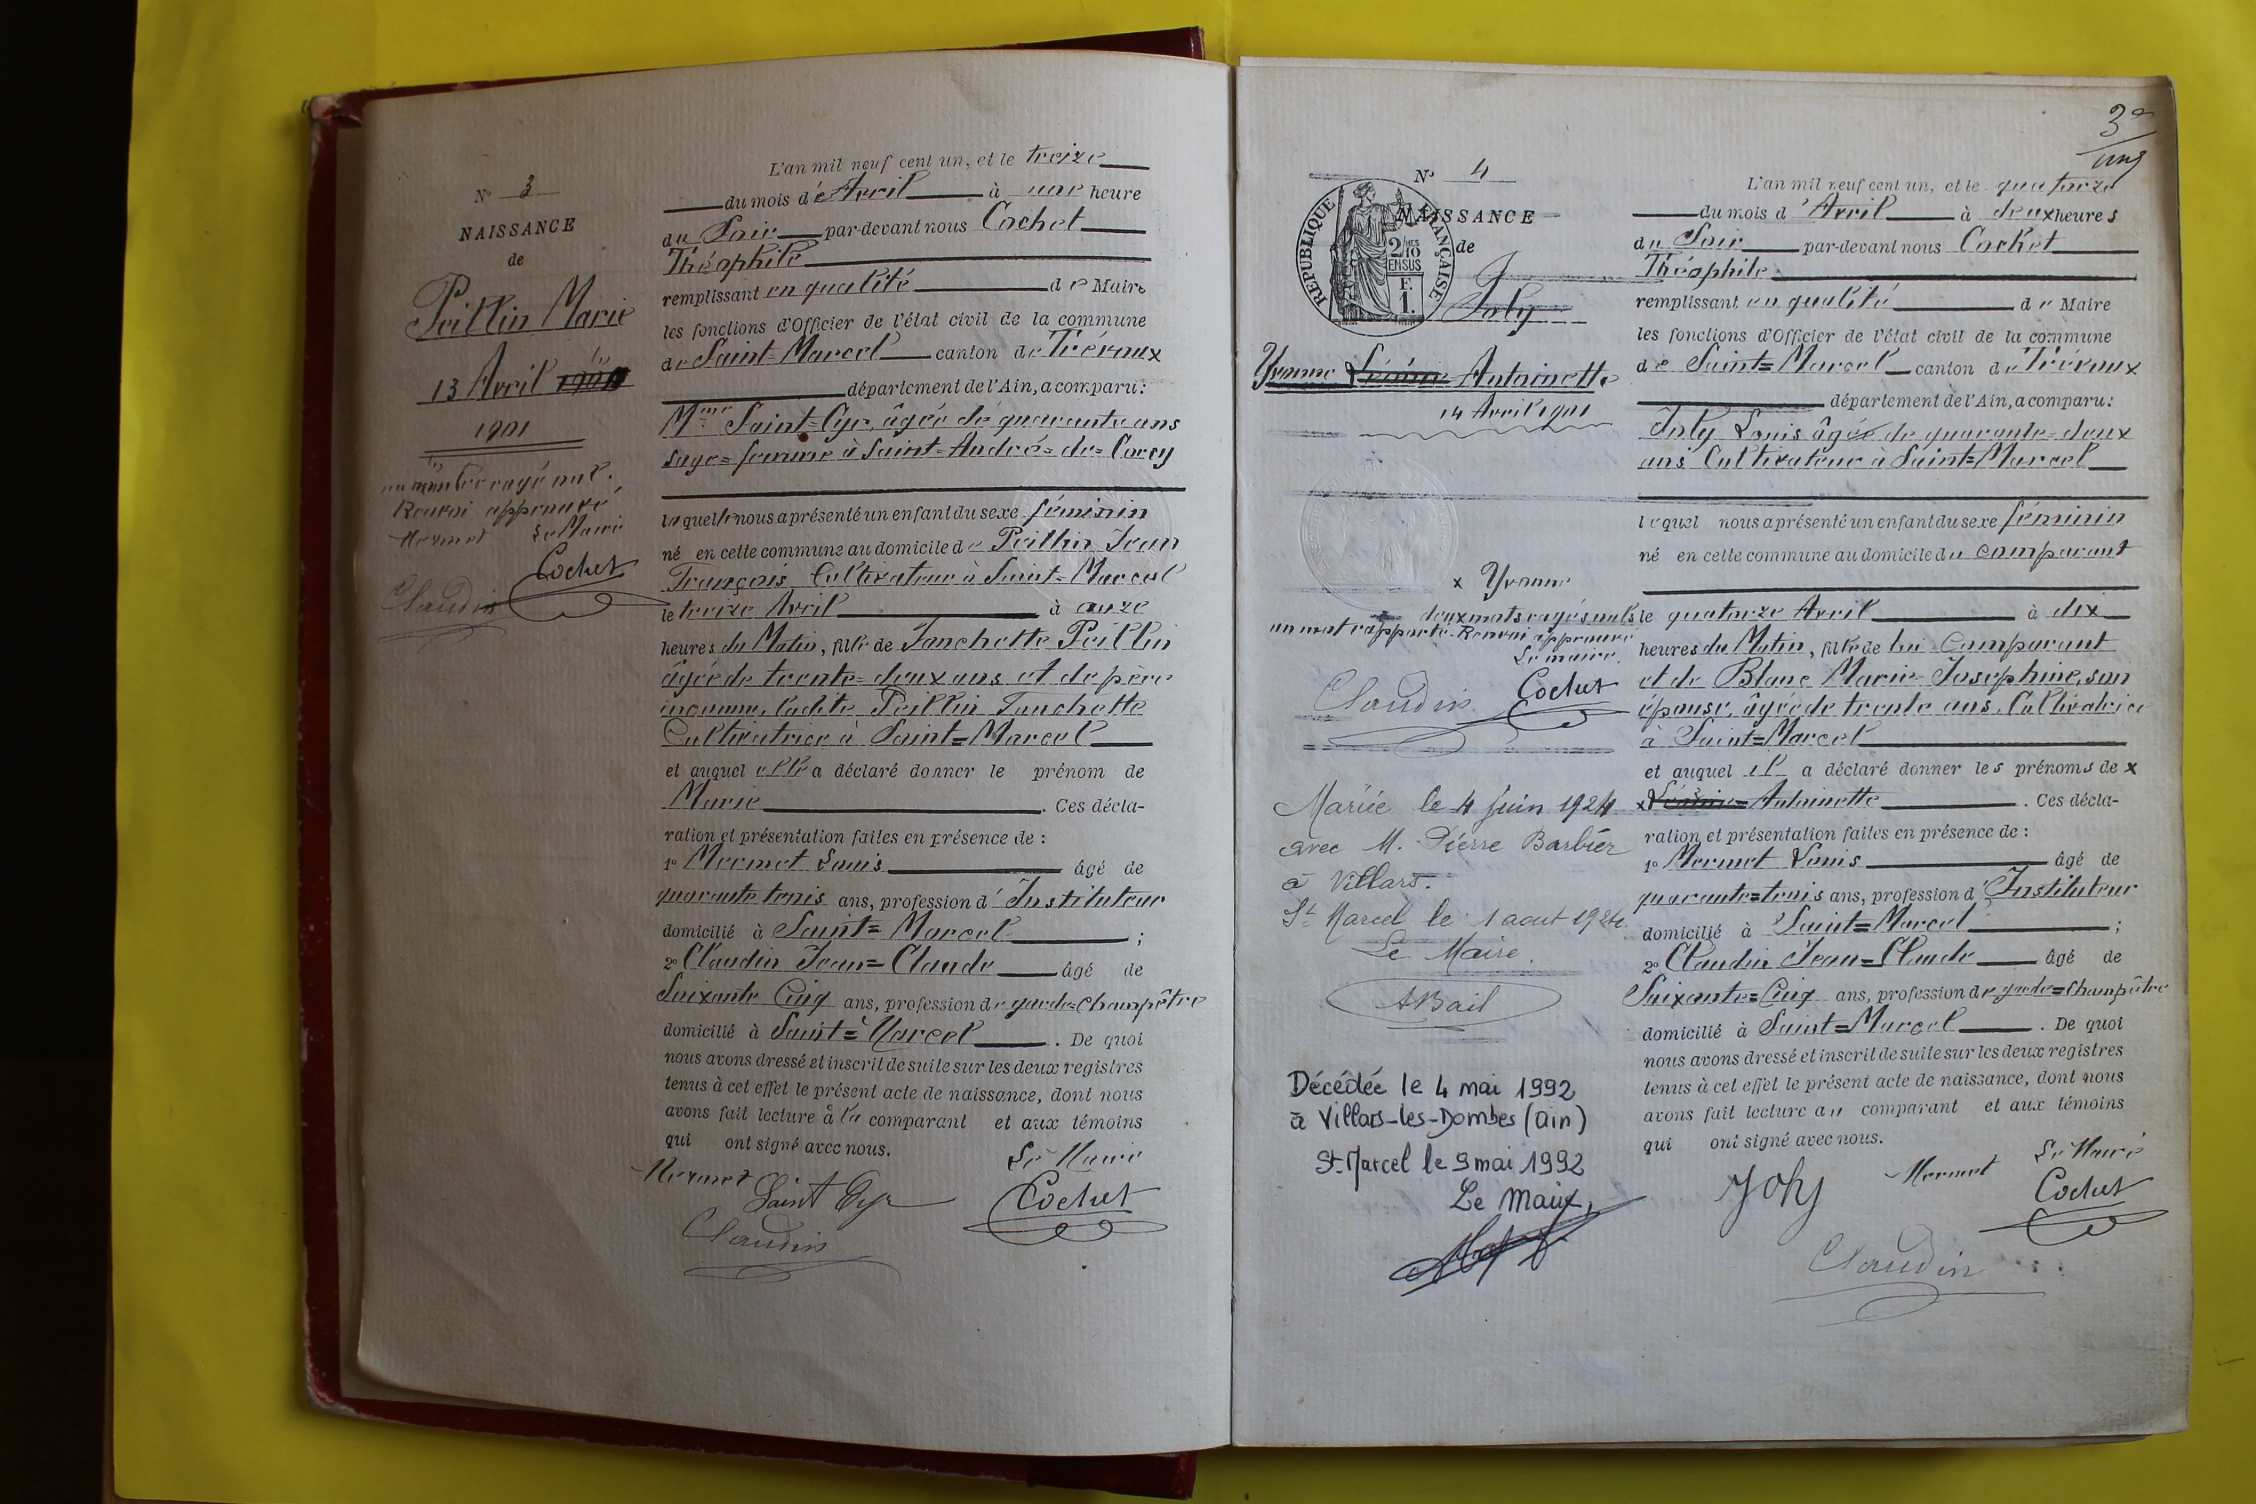 N° 3
NAISSANCE
de
Peillin Marie
13 Avril
1901
Renvoi approuvé
Mermet Le Maire
Cochet
Claudin
L'an mil neuf cent un, et le treize
du mois d'Avril à une heure
du Soir par-devant nous Cochet
Théophile
remplissant en qualité de Maire
les fonctions d'Officier de l'état civil de la commune
de Saint=Marcel canton de Trévoux
département de l'Ain, a comparu:
Mme Saint=Cyr, âgée de quarante ans
sage=femme à Saint=André=de=Corcy
laquelle nous a présenté un enfant du sexe féminin
né en cette commune au domicile de Peillin Jean
François Cultivateur à Saint=Marcel
le treize Avril à onze
heures du Matin, fille de Fanchette Peillin
âgée de trente=deux ans et de père
inconnu, ladite Peillin Fanchette
Cultivatrice à Saint=Marcel
et auquel elle a déclaré donner le prénom de
Marie. Ces décla-
ration et présentation faites en présence de :
1° Mermet Louis âgé de
quarante trois ans, profession d'Instituteur
domicilié à Saint=Marcel ;
2° Claudin Jean=Claude âgé de
Soixante Cinq ans, profession de garde=Champêtre
domicilié à Saint=Marcel. De quoi
nous avons dressé et inscrit de suite sur les deux registres
tenus à cet effet le présent acte de naissance, dont nous
avons fait lecture à la comparant et aux témoins
qui ont signé avec nous.
Le Maire
Mermet Saint Cyr Cochet
Claudin
3e
N° 4
RÉPUBLIQUE FRANÇAISE
2/10 EN SUS
F. 1.
NAISSANCE
de
Joly
Yvonne Antoinette
14 Avril 1901
x Yvonne
deux mots rayés nuls
un mot rapporté. Renvoi approuvé
Le maire.
Claudin Cochet
Mariée le 4 Juin 1924
avec M. Pierre Barbier
à Villars.
St Marcel le 1 aout 1924.
Le Maire.
ABail
Décédée le 4 mai 1992
à Villars-les-Dombes (Ain)
St-Marcel le 9 mai 1992
Le Maire,
L'an mil neuf cent un, et le quatorze
du mois d'Avril à deux heures
du Soir par-devant nous Cochet
Théophile
remplissant en qualité de Maire
les fonctions d'Officier de l'état civil de la commune
de Saint=Marcel canton de Trévoux
département de l'Ain, a comparu:
Joly Louis âgé de quarante=deux
ans Cultivateur à Saint=Marcel
lequel nous a présenté un enfant du sexe féminin
né en cette commune au domicile du comparant
le quatorze Avril à dix
heures du Matin, fille de lui Comparant
et de Blanc Marie=Joséphine, son
épouse, âgée de trente ans, Cultivatrice
à Saint=Marcel
et auquel il a déclaré donner les prénoms de x
x Antoinette. Ces décla-
ration et présentation faites en présence de :
1° Mermet Louis âgé de
quarante=trois ans, profession d'Instituteur
domicilié à Saint=Marcel ;
2° Claudin Jean=Claude âgé de
Soixante=Cinq ans, profession de garde=Champêtre
domicilié à Saint=Marcel. De quoi
nous avons dressé et inscrit de suite sur les deux registres
tenus à cet effet le présent acte de naissance, dont nous
avons fait lecture au comparant et aux témoins
qui ont signé avec nous.
Le Maire
Joly Mermet Cochet
Claudin